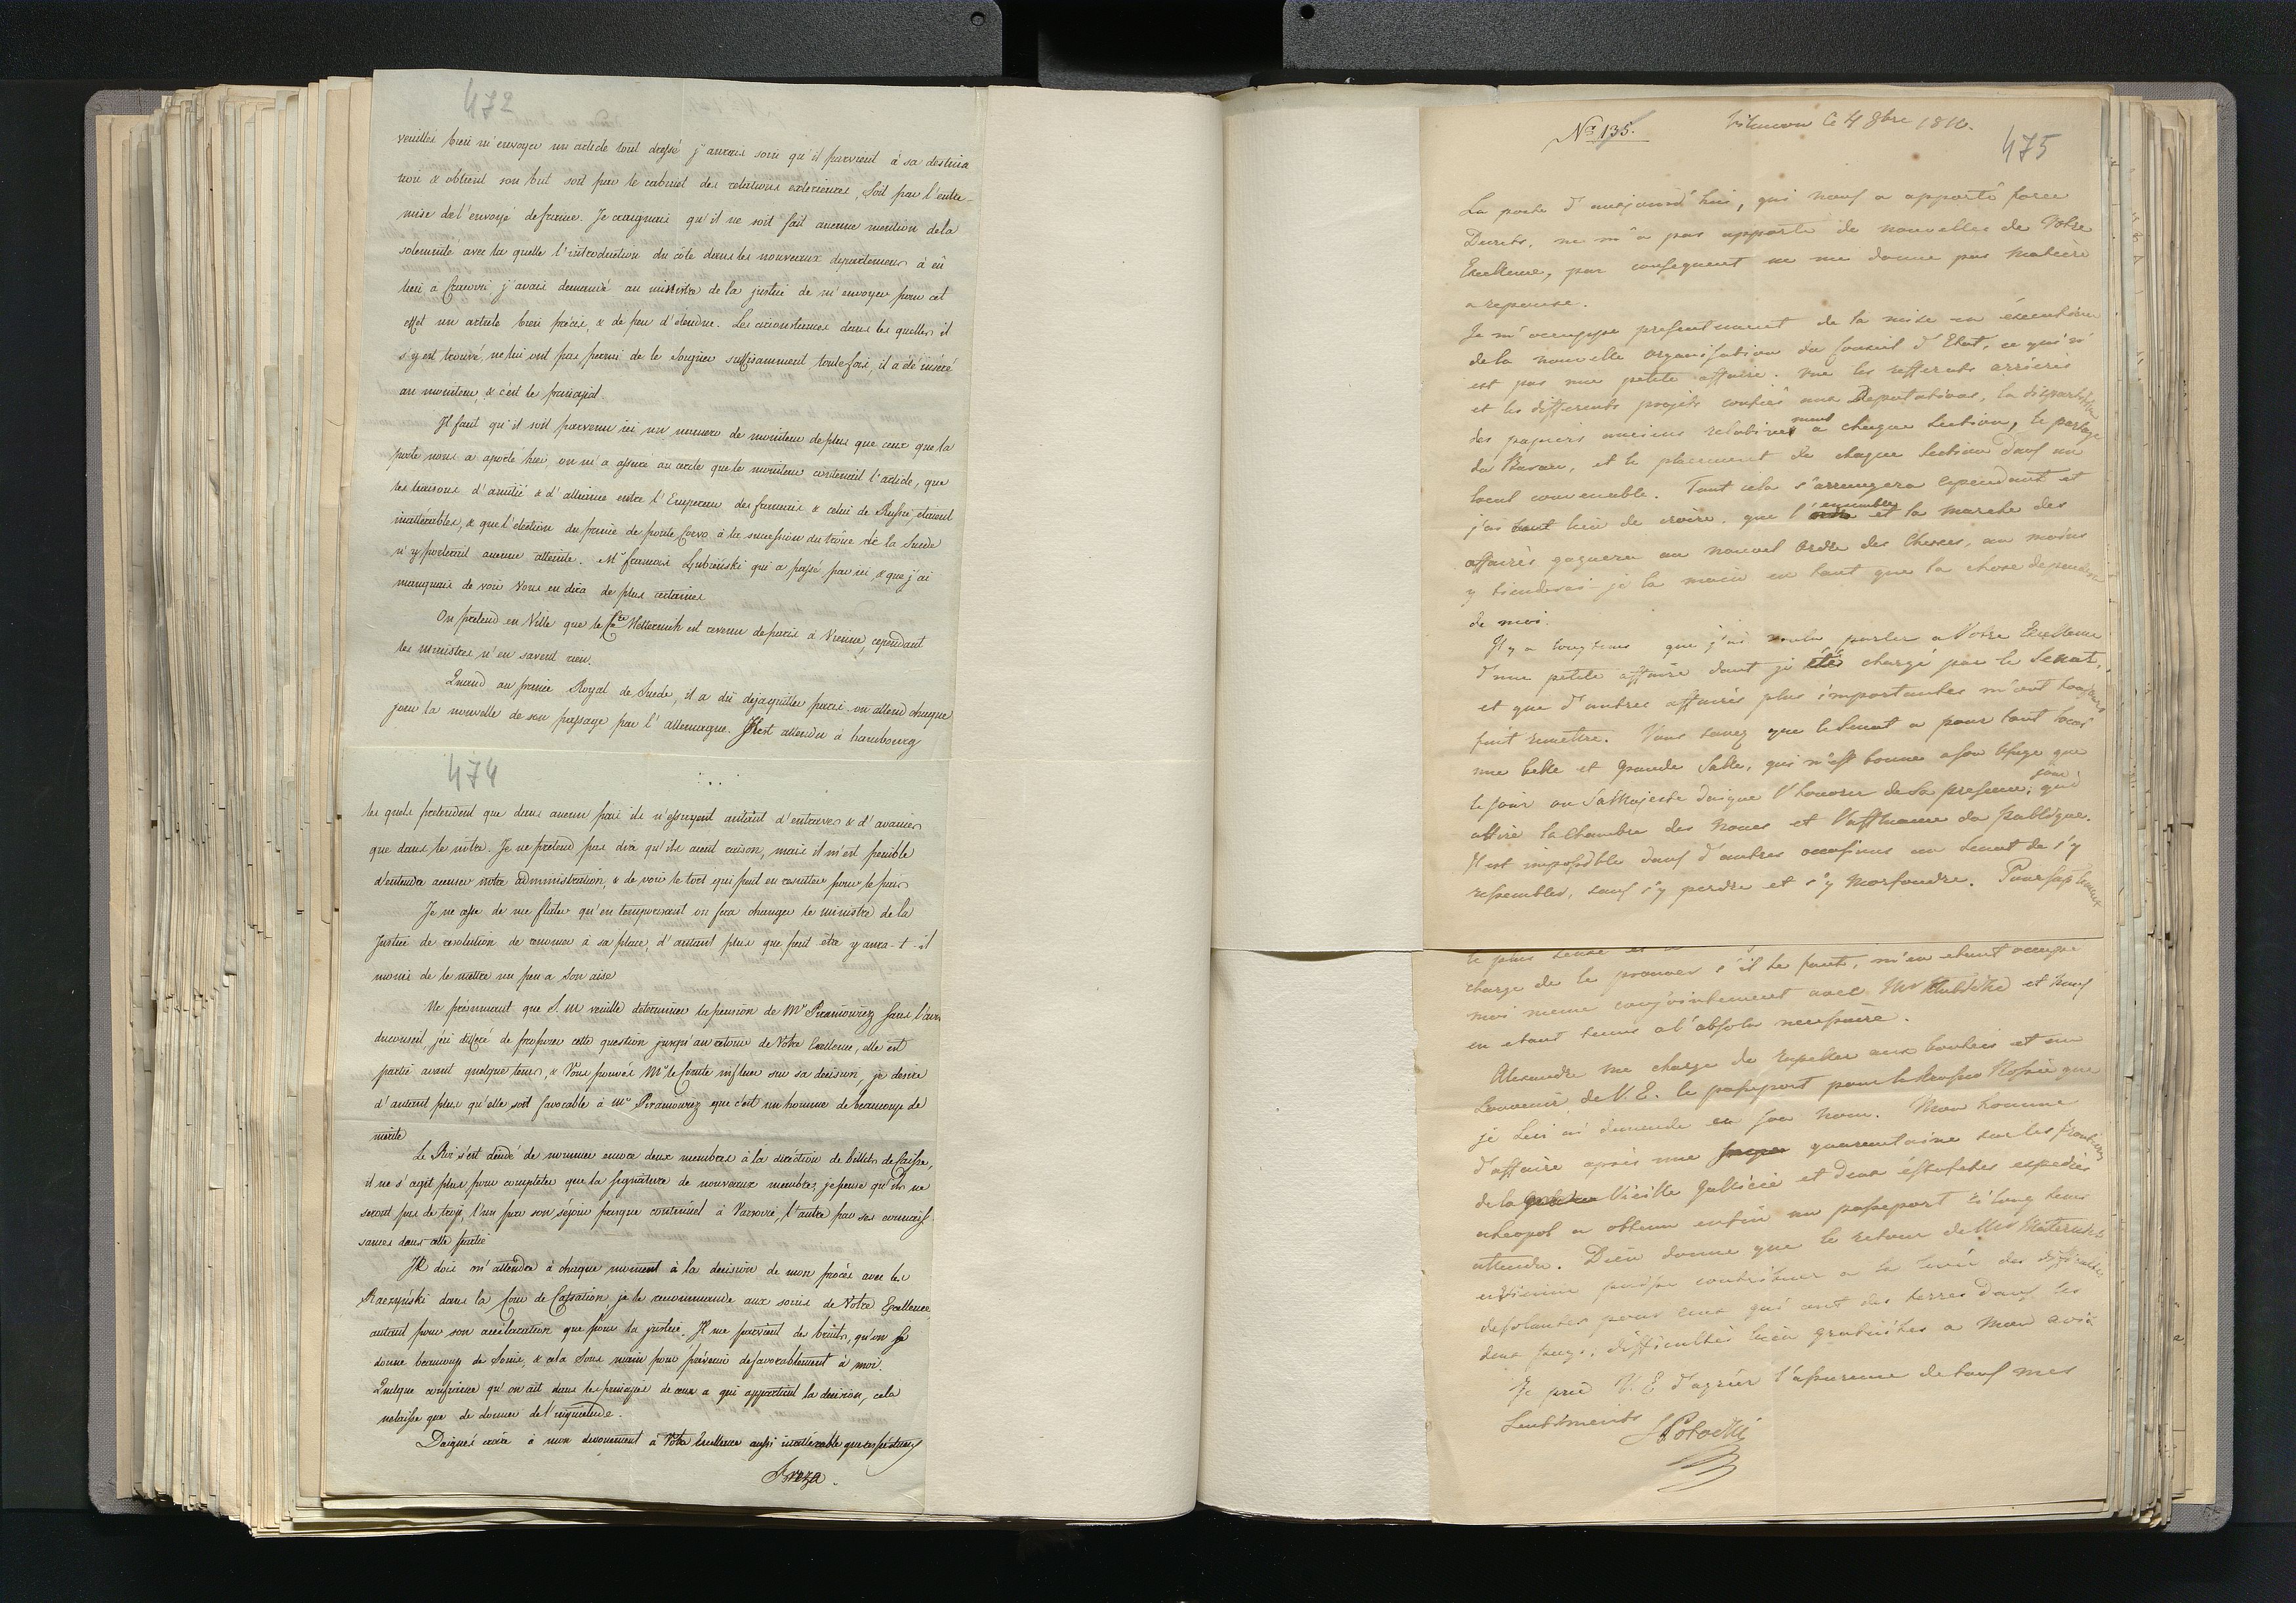 472
veuilliés bien m'envoyer un article tout dressé j'aurais soin qu'il parvient à sa destina
tion & obtient son but soit par le cabinet des relations exterieures, soit par l'entre-
mise de l'envoyé de france. Je craignais qu'il ne soit fait aucune mention de la
solemnité avec la quelle l'introduction du côde dans les nouveaux departemens à eû
lieu a Cracovie j'avais demandé au ministre de la justice de m'envoyer pour cet
effet un article bien précis, & de peu d'étendue. Les circonstances dans les quelles il
s'y est trouvé, ne lui ont pas permis de le soigner suffisamment toutefois, il a été inséré
au moniteur, & c'est le principal.
Il faut qu'il soit parvenu ici un numero de moniteur de plus que ceux que la
poste nous a aporté hier on m'a assuré au cercle que le moniteur contenait l'article, que
les liaisons d'amitié & d'alliance entre l'Empereur des francais & celui de Russie, etaient
inalterables, & que l'election du prince de ponte Corvo à la succession du trône de la Suede
n'y porterait aucune atteinte. Mr francois Lubieński qui a passé par ici & que j'ai
manquais de voir Vous en dira de plus certaines
On pretend en Ville que le Cte Metternich est revenu de paris à Vienne, cependant
les ministres n'en savent rien.
Quand au prince Royal de Suede, il a dû deja quitter paris on attend chaque
jour la nouvelle de son passage par l'allemagne. Il est attendu à hambourg
474
les quels pretendent que dans aucun pais ils n'essuyent autant d'entraves & d'avanies
que dans le nôtre. Je ne pretend pas dire qu'ils aient raison, mais il m'est penible
d'entendre accuser nôtre administration, & de voir le tort qui peut en resulter pour le païs
Je ne cesse de me flater qu'en temporisant on fera changer le ministre de la
Justice de resolution de renoncer à sa place, d'autant plus que peut être y aura-t-il
moien de le mettre un peu a son aise
Ne présumant que S. M veuille déterminer la pension de Mr Piramowicz sans l'avis
du conseil, j'ai differé de proposer cette question jusqu'au retour de Votre Excellence, elle est
partie avant quelque tems, & Vous pouvés Mr le Comte influer sur sa decision, je desire
d'autant plus qu'elle soit favorable à Mr Piramowicz que c'est un homme de beaucoup de
merite
Le Roi s'est decidé de nommer encore deux membres à la direction de billets de Caisse,
il ne s'agit plus pour completer que la signature de nouveaux membres, je pense qu'ils ne
seront pas de trop, l'un par son sejour presque continuel à Varsovie, l'autre par ses connais
sances dans cette partie
Je dois m'attendre à chaque moment à la decision de mon procès avec les
Raczyński dans la Cour de Cassation je le recommande aux soins de Votre Excellence,
autant pour son acceleration que pour la justice. Il me parvient des bruits, qu'on se
donne beaucoup de soins, & cela sous main pour prévenir defavorablement à moi.
Quelque confiance qu'on ait dans les principes de ceux a qui appartient la decision, cela
ne laisse que de donner de l'inquietude.
Daignés croire à mon devouement à Votre Excellence aussi inalterable que
Breza.
No 135.
le 4 8bre 1810.
475
La poste d'aujourd'hui, qui nous a apporté force
Decrets, ne m'a pas apporté de nouvelles de Votre
Excellence, par consequent ne me donne pas matière
a reponse.
Je m'occuppe presentement de la mise en éxecution
de la nouvelle organisation du Conseil d'Etat, ce qui n'
est pas une petite affaire. vue les refferats arrierés
et les differents projets confiés aux Deputations, la dispartition
des papiers anciens relativement a chaque Section, le partage
du Bureau, et le placement de chaque Section dans un
local convenable. Tout cela s'arrangera cependant et
j'ai tout lieu de croire, que l'ensemble et la marche des
affaires gagnera au nouvel Ordre des Choses, au moins
y tienderai je la main en tant que la chose dependra
de moi.
Il y a longtems que j'ai voulu parler a Votre Excellence
d'une petite affaire dont je été chargé par le Senat,
et que d'autres affaires plus importantes m'ont toujours
fait remettre. Vous savez que le Senat a pour tout local
une belle et grande Salle, qui n'est bonne a son Usage que
le jour ou Sa Majesté daigne l'honorer de Sa presence, qui
attire la Chambre des Nonces et l'affluence du publique.
Il est impossible dans d'autres occasions au Senat de s'y
rassembler, sans s'y perdre et s'y morfondre.
charge de le prouver s'il le faut, m'en etant occupé
moi meme conjointement avec Mr et nous
en etant tenus a l'absolu necessaire.
Alexandre me charge de rapeller aux bontées et au
Souvenir de V. E. le passeport pour la Russie que
je Lui ai demandé en son nom. Mon homme
d'affaire après une quarantaine sur les frontieres
de la Vieille Gallicie et deux éstafettes expediés
a Leopol a obtenu enfin un passeport si long tems
attendu. Dieu donne que le retour de Mr Maternich
a Vienne puisse contribuer a la levée des difficultés
desolantes pour ceux qui ont des terres dans les
deux pays, difficultés bien gratuites a mon avis
Je prie V. E d'agréer l'assurance de tous mes
Sentiments
S Potocki